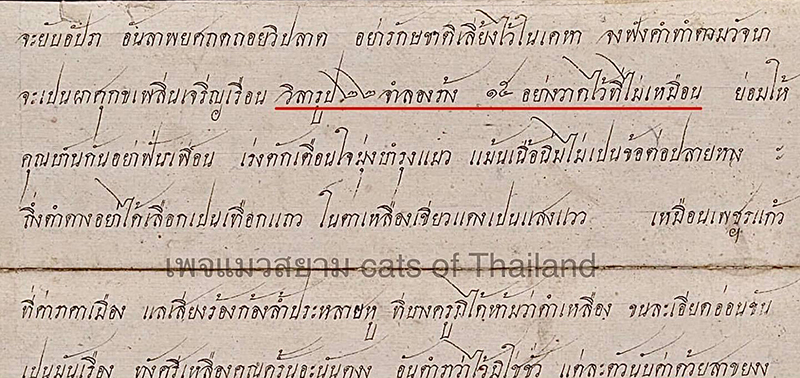 จะยับอัปรา อันลาพยศถดถอยวิปลาด อย่ารักษชาติเลี้ยงไว้ในเคหา จงฟังคำทำตามวัจนา
จะเปนผาศุกขเพลินเจริญเรือน วิลารูป ๒๒ จำลองร่าง ๑๕ อย่างวาดไว้ที่ไม่เหมือน ย่อมให้
คุณท่านกันอย่าฟั่นเฟือน เร่งตักเตือนใจมุ่งบำรุงแมว แม้นเนื้อนิ่มไม่เปนข้อต่อปลายหาง
ถึงดำด่างอย่าได้เลือกเปนเทือกแถว ในตาเหลืองเขียวแดงเปนแสงแวว เหมือนเพชรแก้ว
เพจแมวสยาม cats of Thailand
ที่ค่าราคาเมือง แลเสียงร้องก้องล้ำประหลาษหู ที่บางครูมิได้ห้ามว่าดำเหลือง ขนละเอียดอ่อน
เปนมันเรือง ทั้งศรีเหลืองคุณ อันดำ มิใช่ชั่ว แต่ละตัวนับค่าด้วย